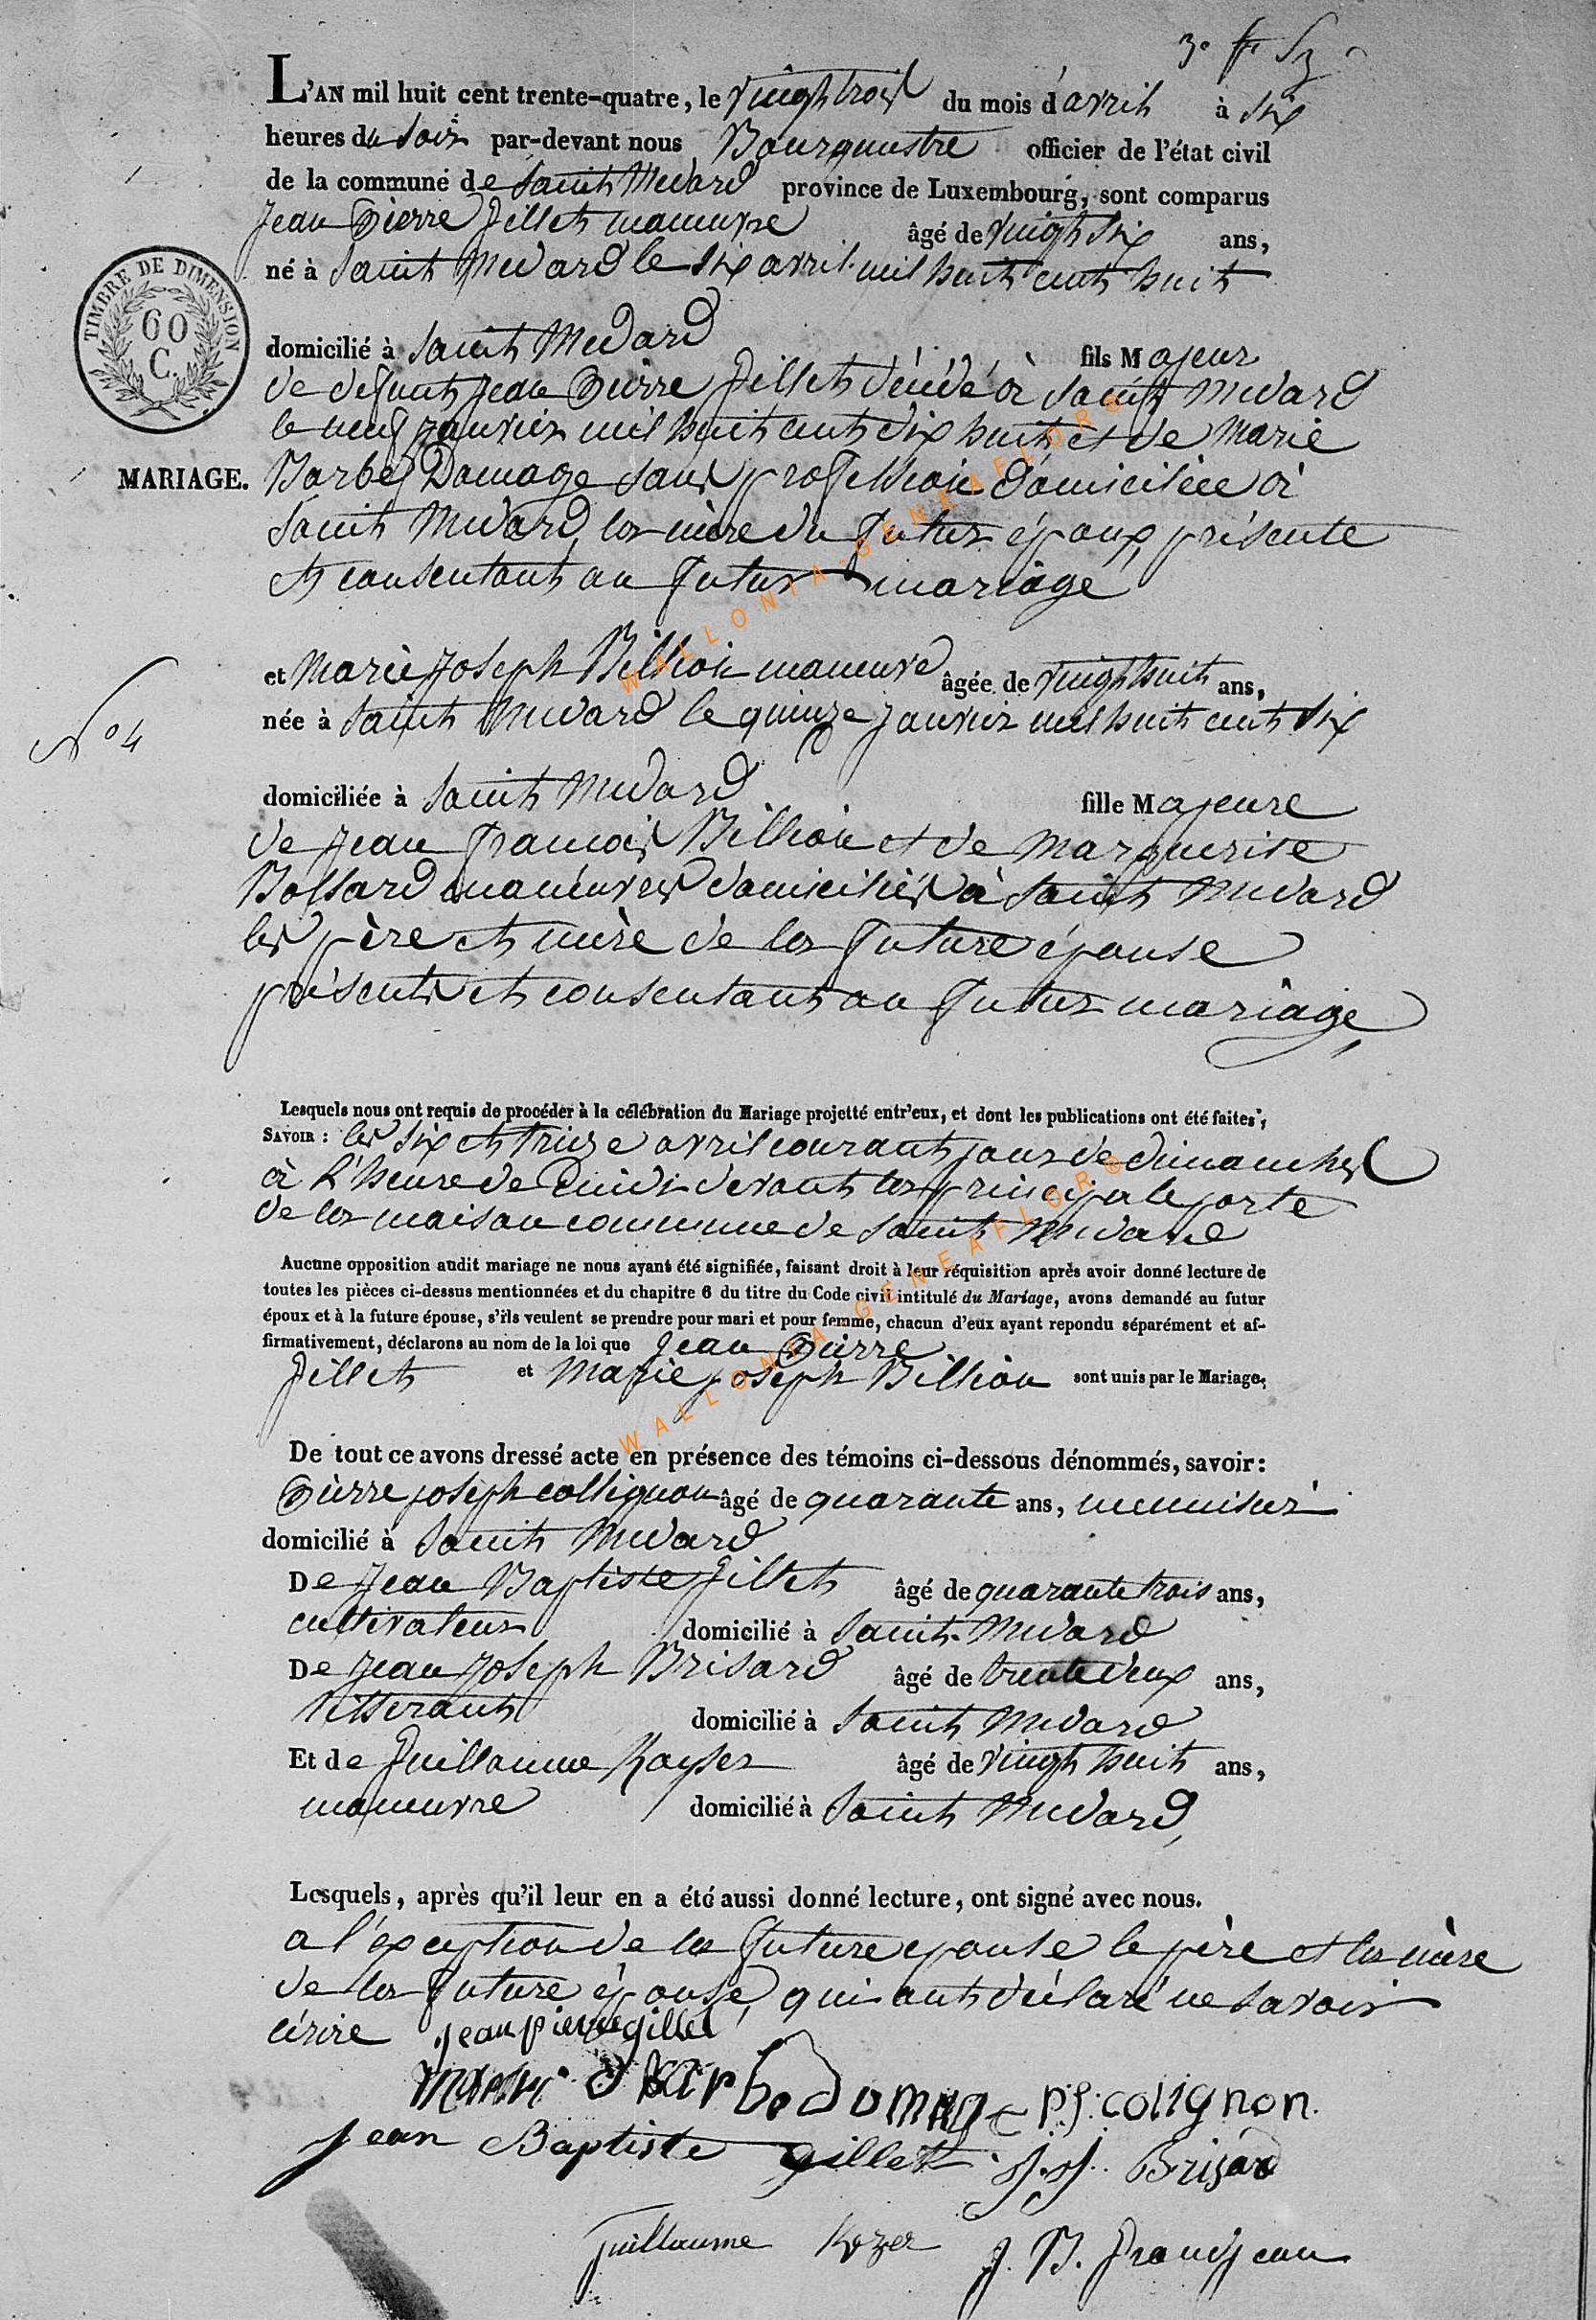 L'AN mil huit cent trente-quatre, le vingt trois du mois d'avril à six
heures du soir par-devant nous Bourguestre officier de l'état civil
de la commune de Saint Medard province de Luxembourg, sont comparus
Jean Pierre Gillet maneuvre âgé de vingt six ans,
né à Saint Medard le six avril mil huit cent huit
TIMBRE DE DIMENSION
60
C.
domicilié à Saint Medard fils Majeur
de defunt Jean Pierre Gillet décédé à Saint Medard
le neuf janvier mil huit cent dix huit, et de Marie
MARIAGE.
Barbe Domage sans profession domiciliée à
Saint Medard, la mère du futur époux, présente
et consentant au futur mariage
et Marie Joseph Billion maneuvre âgée de vingt huit ans,
née à Saint Medard le quinze janvier mil huit cent six
No 4
domiciliée à Saint Medard fille Majeure
de Jean François Billion et de Marguerite
Bossard maneuvres domiciliés à Saint Medard
les père et mère de la future épouse
présents et consentant au futur mariage,
Lesquels nous ont requis de procéder à la célébration du Mariage projetté entr'eux, et dont les publications ont été faites,
SAVOIR : les six et treize avril courant jour de dimanches
à l'heure de midi devant la principale porte
de la maison commune de Saint Medard
Aucune opposition audit mariage ne nous ayant été signifiée, faisant droit à leur réquisition après avoir donné lecture de
toutes les pièces ci-dessus mentionnées et du chapitre 6 du titre du Code civil intitulé du Mariage, avons demandé au futur
époux et à la future épouse, s'ils veulent se prendre pour mari et pour femme, chacun d'eux ayant repondu séparément et af-
firmativement, déclarons au nom de la loi que Jean Pierre
Gillet et Marie Joseph Billion sont unis par le Mariage.
De tout ce avons dressé acte en présence des témoins ci-dessous dénommés, savoir :
Pierre joseph collignon âgé de quarante ans, menuisier
domicilié à Saint Medard
De Jean Baptiste Gillet âgé de quarante trois ans,
cultivateur domicilié à Saint Medard
De Jean Joseph Brisard âgé de trente deux ans,
tisserant domicilié à Saint Medard
Et de Guillaume Kayser âgé de vingt huit ans,
maneuvre domicilié à Saint Medard,
Lesquels, après qu'il leur en a été aussi donné lecture, ont signé avec nous.
a l'exception de la future epouse le père et la mère
de la future épouse, qui ont déclaré ne savoir
écrire jean pierre gillet
marie barbe domage p.j. colignon.
jean Baptiste gillet J.J. Brisard
Guillaume Kozer J. B. Grandjean
WALLONIA-GENEAFLOR®
WALLONIA-GENEAFLOR®